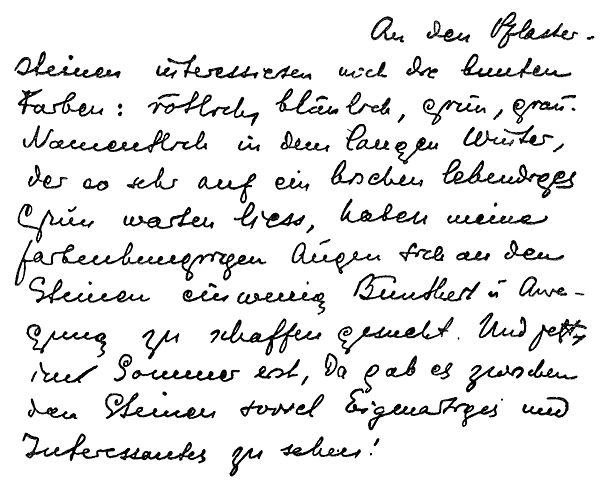 An den Pflaster-
steinen interessieren mich die bunten
Farben: rötlich, bläulich, grün, grau.
Namentlich in dem langen Winter,
der so sehr auf ein bischen lebendiges
Grün warten liess, haben meine
farbenhungrigen Augen sich an den
Steinen ein wenig Buntheit u Anre-
gung zu schaffen gesucht. Und jetzt,
im Sommer erst, da gab es zwischen
den Steinen soviel Eigenartiges und
Interessantes zu sehen!